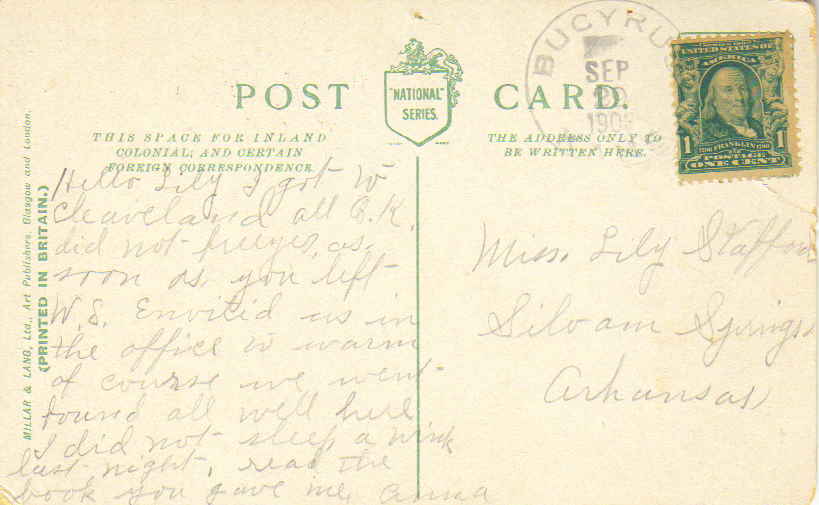 POST CARD.
"NATIONAL"
SERIES.
THIS SPACE FOR INLAND
COLONIAL, AND CERTAIN
FOREIGN CORRESPONDENCE.
THE ADDRESS ONLY TO
BE WRITTEN HERE.
BUCYRUS
SEP
190
UNITED STATES OF
AMERICA
1 FRANKLIN 1
POSTAGE
ONE CENT
MILLAR & LANG, Ltd., Art Publishers, Glasgow and London.
(PRINTED IN BRITAIN.)
Hello Lily I got to
Cleaveland all O.K.
did not freeze, as
soon as you left
W.S. Envitid us in
the office to warm
of course we went
found all well here
I did not sleep a wink
last night, read the
book you gave me, Anna
Miss. Lily Stafford
Siloam Springs
Arkansas